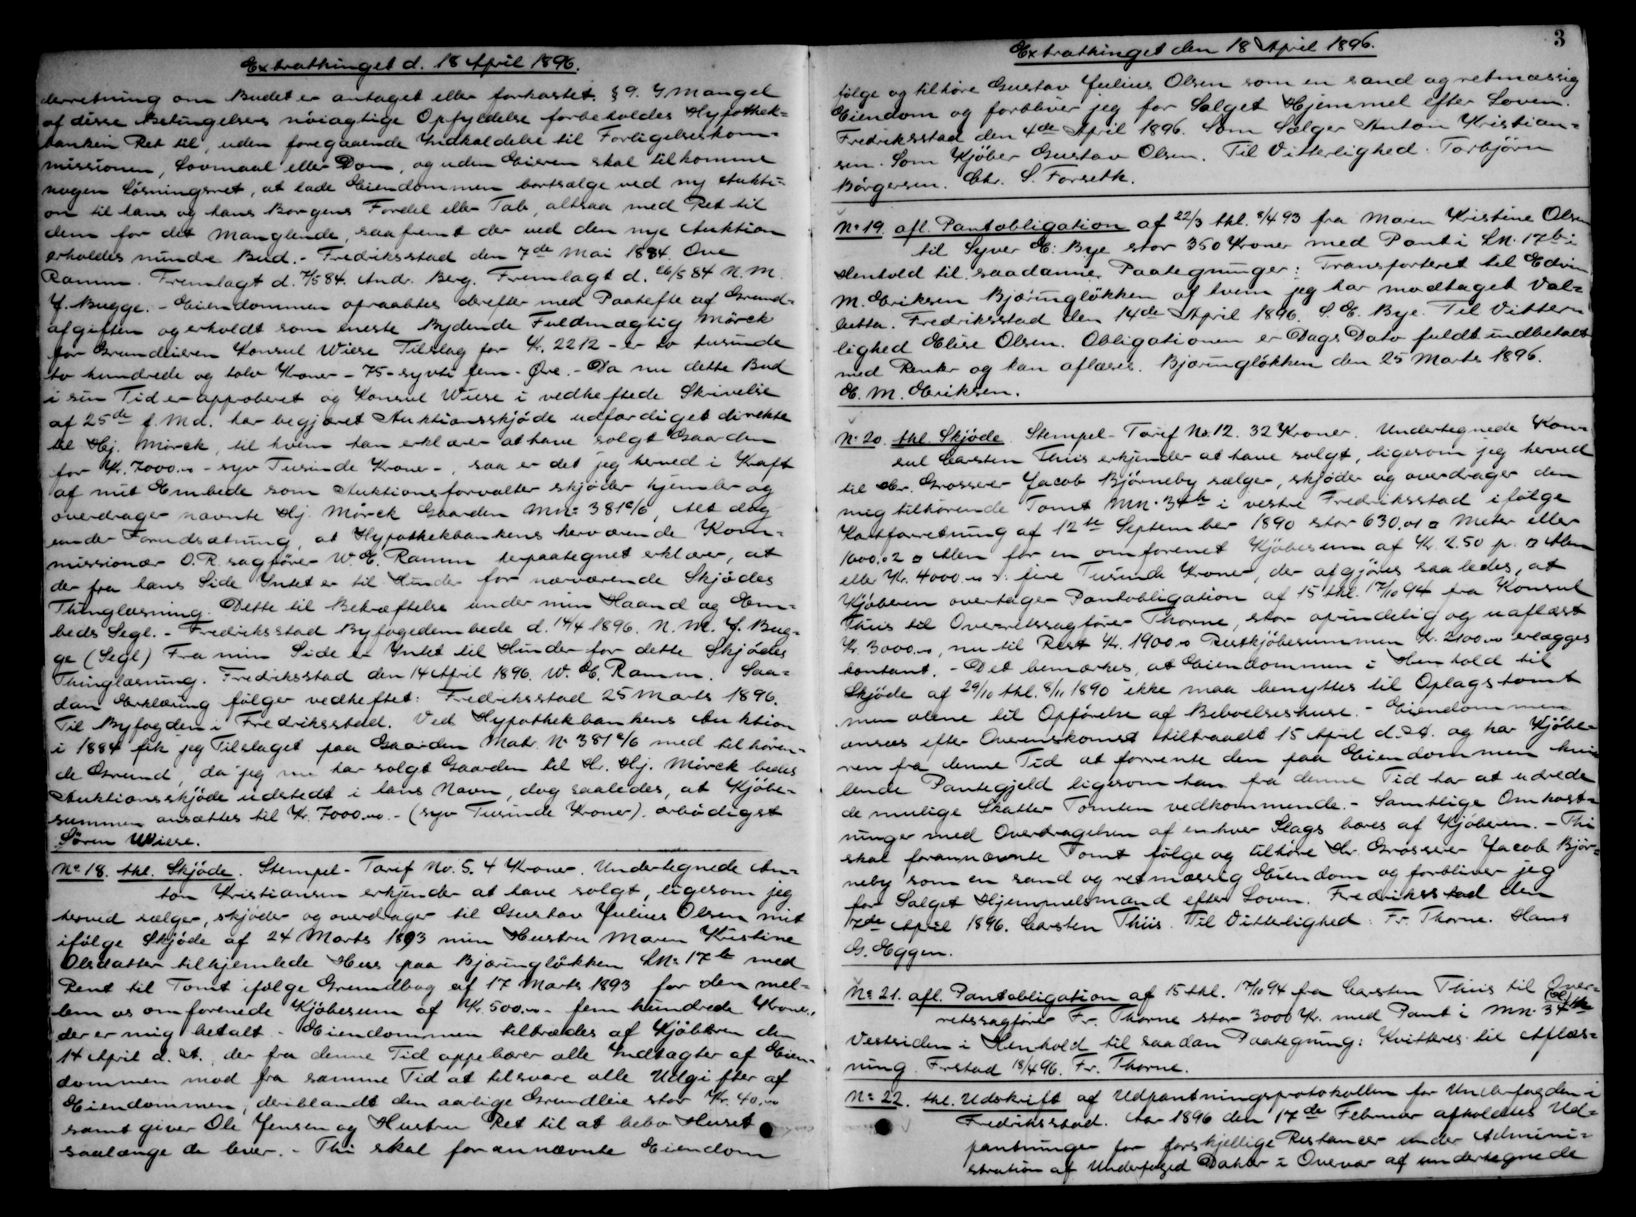 Extrathinget d. 18 April 1896.
derretning om Budet er antaget eller forkastet. § 9. I Mangel
af disse Betingelsers nöiagtige Opfyldelse forbeholdes Hypothek-
banken Ret til, uden foregaaende Indkaldelse til Forligelseskom-
missionen, Lovmaal eller Dom, og uden Eieren skal tilkomme
nogen Løsningsret, at lade Eiendommen bortsælge ved ny Aukti-
on til hans og hans Borgens Fordel eller Tab, altsaa med Ret til
dem for det Manglende, saafremt der ved den nye Auktion
erholdes mindre Bud. - Fredriksstad den 7de Mai 1884. Ove
Ramm. Fremlagt d. 7/5 84. Andr. Berg. Fremlagt d. 26/5 84 N. M.
J. Bugge. - Eiendommen opraabtes derefter med Paahefte af Grund-
afgiften og erholdt som meste Bydende Fuldmægtig Mörck
for Grundeieren Konsul Wiese Tilslag for Kr. 2212 - er to tusinde
to hundrede og tolv Kroner - 75 - sytti fem - Øre. - Da nu dette Bud
i sin Tid er approberet og Konsul Wiese i vedheftede Skrivelse
af 25de f. Md. har begjæret Auktionsskjöde udfærdiget direkte
til Hj. Mörck, til hvem han erklærer at have solgt Gaarden
for Kr. 7000.00 - syv Tusinde Kroner -, saa er det jeg herved i Kraft
af mit Embede som Auktionsforvalter skjöder hjemler og
overdrager nævnte Hj. Mörck Gaarden Mn: 381 c/6, Alt dog
under Forudsætning, at Hypothekbankens herværende Kom-
missionær O.R. sagförer W. E. Ramm herpaategnet erklærer, at
der fra hans Side Intet er til Hinder for nærværende Skjödes
Thinglæsning. Dette til Bekræftelse under min Haand og Em-
beds Segl. - Fredriksstad Byfogedembede d. 14/4 1896. N. M. J. Bug-
ge (Segl) Fra min Side er Intet til Hinder for dette Skjödes
Thinglæsning. Fredriksstad den 14 April 1896. W. E. Ramm. Saa-
dan Erklæring følger vedheftet: Fredriksstad 25 Marts 1896.
Til Byfogden i Fredriksstad. Ved Hypothekbankens Auktion
i 1884 fik jeg Tilslaget paa Gaarden Matr. No 381 c/6 med tilhören-
de Grund, da jeg nu har solgt Gaarden til Hr. Hj. Mörck bedes
Auktionsskjöde udstedt i hans Navn, dog saaledes, at Kjöbe-
summen ansættes til Kr. 7000.00. - (syv Tusinde Kroner). Ærbödigst
Sören Wiese.
No 18. thl. Skjöde. Stempel - Tarif No. 5. 4 Kroner. Undertegnede An-
ton Kristiansen erkjender at have solgt, ligesom jeg
herved sælger, skjöder og overdrager til Gustav Julius Olsen mit
ifölge Skjöde af 24 Marts 1893 min Hustru Maren Kristine
Olsdatter tilhjemlede Hus paa Bjæringlökken LNo 17b med
Ret til Tomt ifölge Grundbog af 17 Marts 1893 for den mel-
lem os omforenede Kjöbesum af Kr. 500.00 - fem hundrede Kroner,
der er mig betalt. - Eiendommen tiltrædes af Kjöberen den
14 April d. A. der fra denne Tid oppebærer alle Indtægter af Eien-
dommen mod fra samme Tid at tilsvare alle Udgifter af
Eiendommen, deriblandt den aarlige Grundleie stor Kr. 40.00
samt giver Ole Jensen og Hustru Ret til at bebo Huset
saalænge de lever. - Thi skal forannævnte Eiendom
Extrathinget den 18 April 1896.
3
følge og tilhöre Gustav Julius Olsen som en sand og retmæssig
Eiendom og forbliver jeg for Salget Hjemmel efter Loven.
Fredriksstad den 4de April 1896. Som Sælger Anton Kristian-
sen. Som Kjöber Gustav Olsen. Til Vitterlighed: Torbjörn
Börgersen. Chr. S. Forseth.
No 19. afl. Pantobligation af 22/3 thl. 8/4 93 fra Maren Kristine Olsen
til Syver E. Bye stor 350 Kroner med Pant i LN. 17b i
Henhold til saadanne Paategninger: Transporteret til Edvin
M. Eriksen Bjæringløkken af hvem jeg har modtaget Val-
butta. Fredriksstad den 14de April 1896. S. E. Bye. Til Vitter-
lighed Elise Olsen. Obligationen er Dags Dato fuldt indbetalt
med Renter og kan aflæses. Bjæringløkken den 25 Marts 1896.
E. M. Eriksen.
No 20. thl. Skjöde. Stempel-Tarif No. 12. 32 Kroner. Undertegnede Kon-
sul Carsten Thiis erkjender at have solgt, ligesom jeg herved
til Hr. Grosserer Jacob Björneby sælger, skjöder og overdrager den
mig tilhörende Tomt MN. 34b i vestre Fredriksstad ifölge
Kartforretning af 12te September 1890 stor 630,01 □ Meter eller
1600,02 □ Alen for en omforenet Kjöbesum af Kr. 2.50 pr. □ Alen
eller Kr. 4000.00 ɔ: fire Tusinde Kroner, der afgjöres saaledes, at
Kjöberen overtager Pantobligation af 15 thl. 17/10 94 fra Konsul
Thiis til Overretssagförer Thorne, stor oprindelig og uaflæst
Kr. 3000.00, nu til Rest Kr. 1900.00 Restkjöbesummen Kr. 2100.00 erlægges
kontant. - Det bemærkes, at Eiendommen i Henhold til
Skjöde af 29/10 thl. 8/11 1890 ikke maa benyttes til Oplagstomt
men alene til Opförelse af Beboelseshuse. - Eiendommen
ansees efter Overenskomst tiltraadt 15 April d. A. og har Kjöbe-
ren fra denne Tid at forrente den paa Eiendommen hvi-
lende Pantegjeld ligesom han fra denne Tid har at udrede
de mulige Skatter Tomten vedkommende. - Samtlige Omkost-
ninger med Overdragelsen af enhver Slags bæres af Kjöberen. - Thi
skal forannævnte Tomt følge og tilhöre Hr. Grosserer Jacob Björ-
neby som en sand og retmæssig Eiendom og forbliver jeg
for Salget Hjemmelsmand efter Loven. Fredriksstad den
17de April 1896. Carsten Thiis. Til Vitterlighed: Fr. Thorne. Hans
G. Eggen.
No 21. afl. Pantobligation af 15 thl. 17/10 94 fra Carsten Thiis til Over-
retssagförer Fr. Thorne stor 3000 Kr. med Pant i MN. 34b
Vestsiden i Henhold til saadan Paategning: Kvitteres til Aflæs-
ning. Frstad 18/4 96. Fr. Thorne.
No 22. thl. Udskrift af Udpantningsprotokollen for Underfogden i
Fredriksstad. Aar 1896 den 17de Februar afholdtes Ud-
pantninger for forskjellige Restancer under Admini-
stration af Underfoged Dahler i Overvær af undertegnede